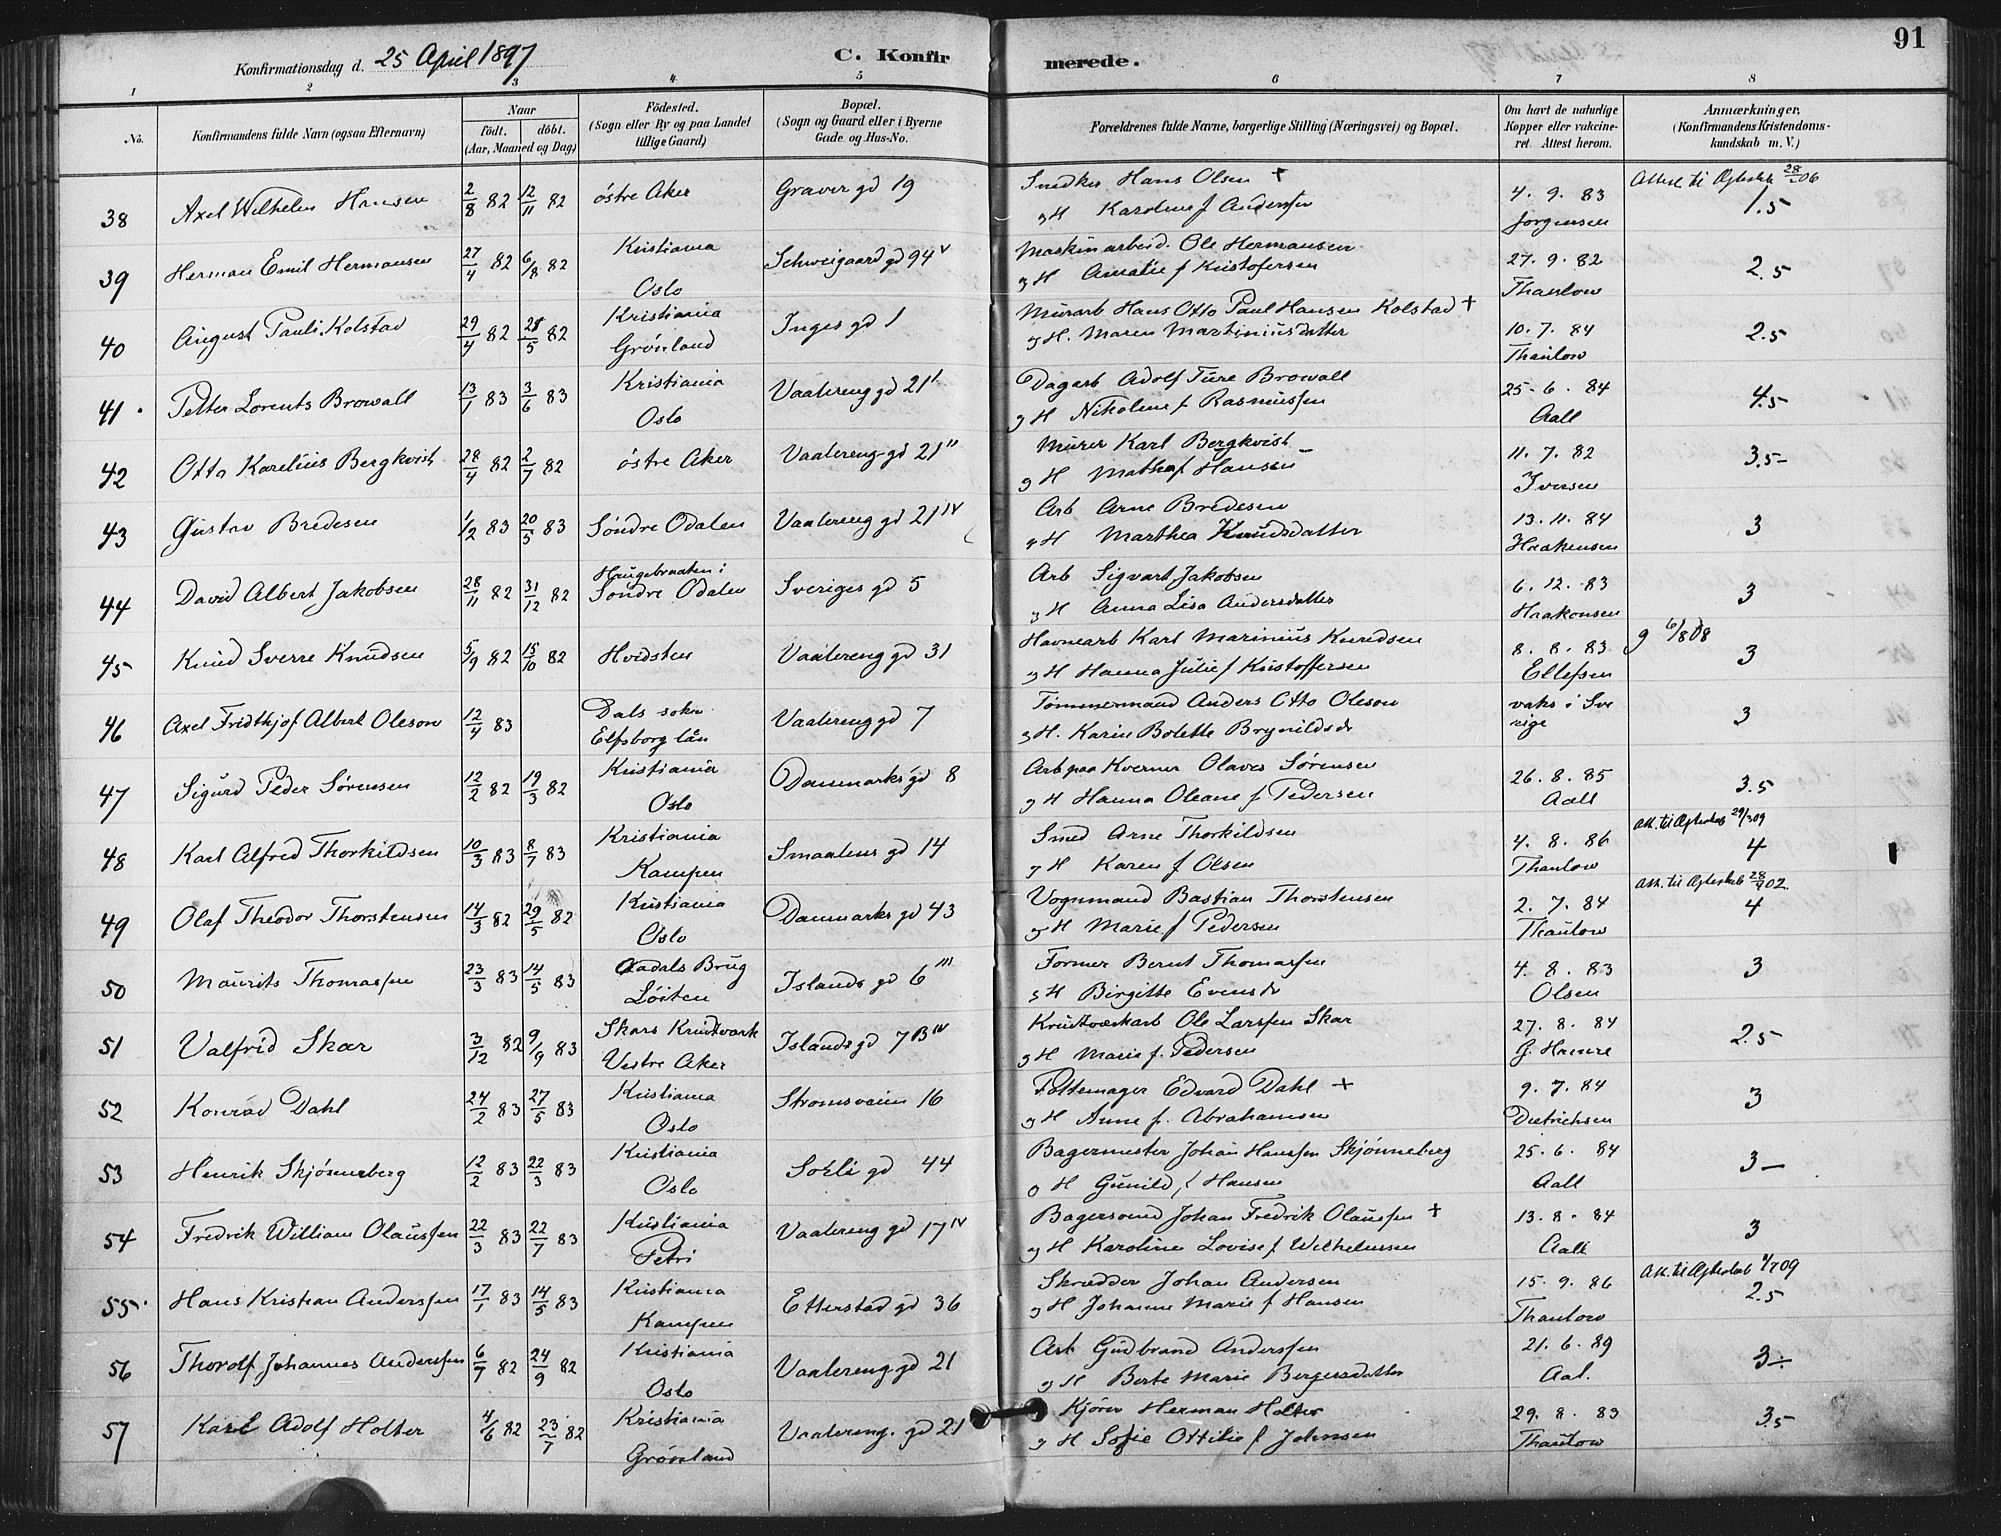 91
Konfirmationsdag d. 25 April 1897
C. Konfirmerede.
1 2 3 4 5 6 7 8
No.
Konfirmandens fulde Navn (ogsaa Efternavn)
Naar
födt. döbt.
(Aar, Maaned og Dag)
Födested.
(Sogn eller By og paa Landet
tillige Gaard)
Bopæl.
(Sogn og Gaard eller i Byerne
Gade og Hus-No.
Forældrenes fulde Navne, borgerlige Stilling (Næringsvei) og Bopæl.
Om havt de naturlige
Kopper eller vakcine-
ret. Attest herom.
Anmærkninger,
(Konfirmandens Kristendoms-
kundskab m. V.)
38 Axel Wilhelm Hansen 2/8 82 12/11 82 östre Aker Graver gd 19 Snedker Hans Olsen +
g H Karoline f Andersen 4. 9. 83
Jørgensen 1.5
39 Herman Emil Hermansen 27/4 82 6/8 82 Kristiania
Oslo Schweigaard gd 94 v Maskinarbeid. Ole Hermansen
g H Amalie f Kristofersen 27. 9. 82
Thaulow 2.5
40 August Pauli Kolstad 29/4 82 28/5 82 Kristiania
Grönland Inges gd 1 Murarb Hans Otto Paul Hansen Kolstad +
g H. Maren Martiniusdatter 10. 7. 84
Thaulow 2.5
41 Petter Lorents Browall 13/1 83 3/6 83 Kristiania
Oslo Vaalereng gd 21 I Dagarb Adolf Ture Browall
g H Nikoline f Rasmussen 25. 6. 84
Aall 4.5
42 Otto Karelius Bergkvist 28/4 82 2/7 82 östre Aker Vaalereng gd 21 II Murer Karl Bergkvist
g H Mathea f Hansen 11. 7. 82
Iversen 3.5-
43 Gustav Bredesen 1/2 83 20/5 83 Söndre Odalen Vaalereng gd 21 IV Arb Arne Bredesen
g H Marthea Knudsdatter 13. 11. 84
Haakensen 3
44 David Albert Jakobsen 28/11 82 31/12 82 Haugebraaten i
Söndre Odalen Sveriges gd 5 Arb Sigvart Jakobsen
g H Anna Lisa Andersdatter 6. 12. 83
Haakonsen 3
45 Knud Sverre Knudsen 5/9 82 15/10 82 Hvidsten Vaalereng gd 31 Havnearb Karl Marinius Knudsen
g H Hanna Julie f Kristoffersen 8. 8. 83
Ellefsen g 6/8 08
3
46 Axel Fridthjof Albert Oleson 12/4 83 Dals sokn
Elfsborg län Vaalereng gd 7 Tömmermand Anders Otto Oleson
g H. Karin Bolette Brynildsdr vaks i Sve
rige 3
47 Sigurd Peder Sörensen 12/2 82 19/3 82 Kristiania
Oslo Danmarks gd 8 Arb paa Kverner Olaves Sörensen
g H Hanna Oleane f Pedersen 26. 8. 85
Aall 3.5
48 Karl Alfred Thorkildsen 10/3 83 8/7 83 Kristiania
Kampen Smaalens gd 14 Smed Arne Thorkildsen
g H Karen f Olsen 4. 8. 86
Thaulow 4
49 Olaf Theodor Thorstensen 14/3 82 29/5 82 Kristiania
Oslo Danmarks gd 43 Vognmand Bastian Thorstensen
g H Marie f Pedersen 2. 7. 84
Thaulow Att. til Ægteskab 02
4
50 Maurits Thomassen 23/3 83 14/5 83 Aadals Brug
Löiten Islands gd 6 III Former Bernt Thomassen
g H Birgitte Evensdr 4. 8. 83
Olsen 3
51 Valfrid Skar 3/12 82 9/9 83 Skars Krudtværk
Vestre Aker Islands gd 7 B IV Krudtværkarb Ole Larssen Skar
g H Marie f. Pedersen 27. 8. 84 2.5
52 Konrad Dahl 24/2 83 27/5 83 Kristiania
Oslo Strømsveien 16 Pottemager Edvard Dahl +
g H Anne f. Abrahamsen 9. 7. 84
Dietrichsen 3
53 Henrik Skjönneberg 12/2 83 22/3 83 Kristiania
Oslo Sörli gd 44 Bagermester Johan Hanssen Skjönneberg
g H Gunild f Hansen 25. 6. 84
Aall 3-
54 Fredrik William Olaussen 22/3 83 22/7 83 Kristiania
Petri Vaalereng gd 17 IV Bagersvend Johan Fredrik Olaussen +
g H Karoline Lovise f Wilhelmsen 13. 8. 84
Aall 3
55 Hans Kristian Anderssen 17/1 83 14/5 83 Kristiania
Kampen Etterstad gd 36 Skrædder Johan Andersen
g H Johanne Marie f Hansen 15. 9. 86
Thaulow 2.5
56 Thorolf Johannes Anderssen 6/7 82 24/9 82 Kristiania
Oslo Vaalereng gd 21 Arb Gudbrand Anderssen
g H Berte Marie Bergersdatter 21. 6. 89
Aal. 3÷
57 Karl Adolf Holter 4/6 82 23/7 82 Kristiania
Grönland Vaalereng. gd 21 Kjörer Herman Holter
g H Sofie Ottilie f Johnsen 29. 8. 83
Thaulow 3.5